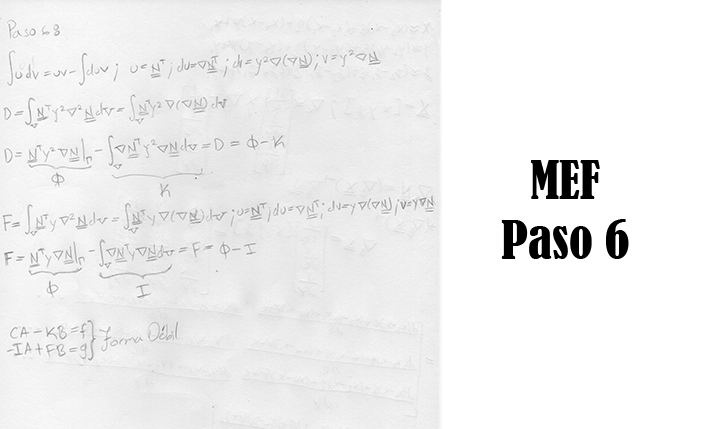 Paso 6:
∫udv = uv - ∫duv ; u = N^T ; du = ∇N^T ; dv = y²∇(∇N) ; v = y²∇N
D = ∫_v N^T y² ∇² N dv = ∫_v N^T y² ∇(∇N) dv
D = N^T y² ∇N|_Γ - ∫_v ∇N^T y² ∇N dv = D = ϕ - K
ϕ K
F = ∫_v N^T y ∇² N dv = ∫_v N^T y ∇(∇N) dv ; u = N^T ; du = ∇N^T ; dv = y∇(∇N) ; v = y∇N
F = N^T y ∇N|_Γ - ∫_v ∇N^T y ∇N dv = F = ϕ - I
ϕ I
CA - KB = f
-IA + FB = g } Forma Débil
MEF
Paso 6